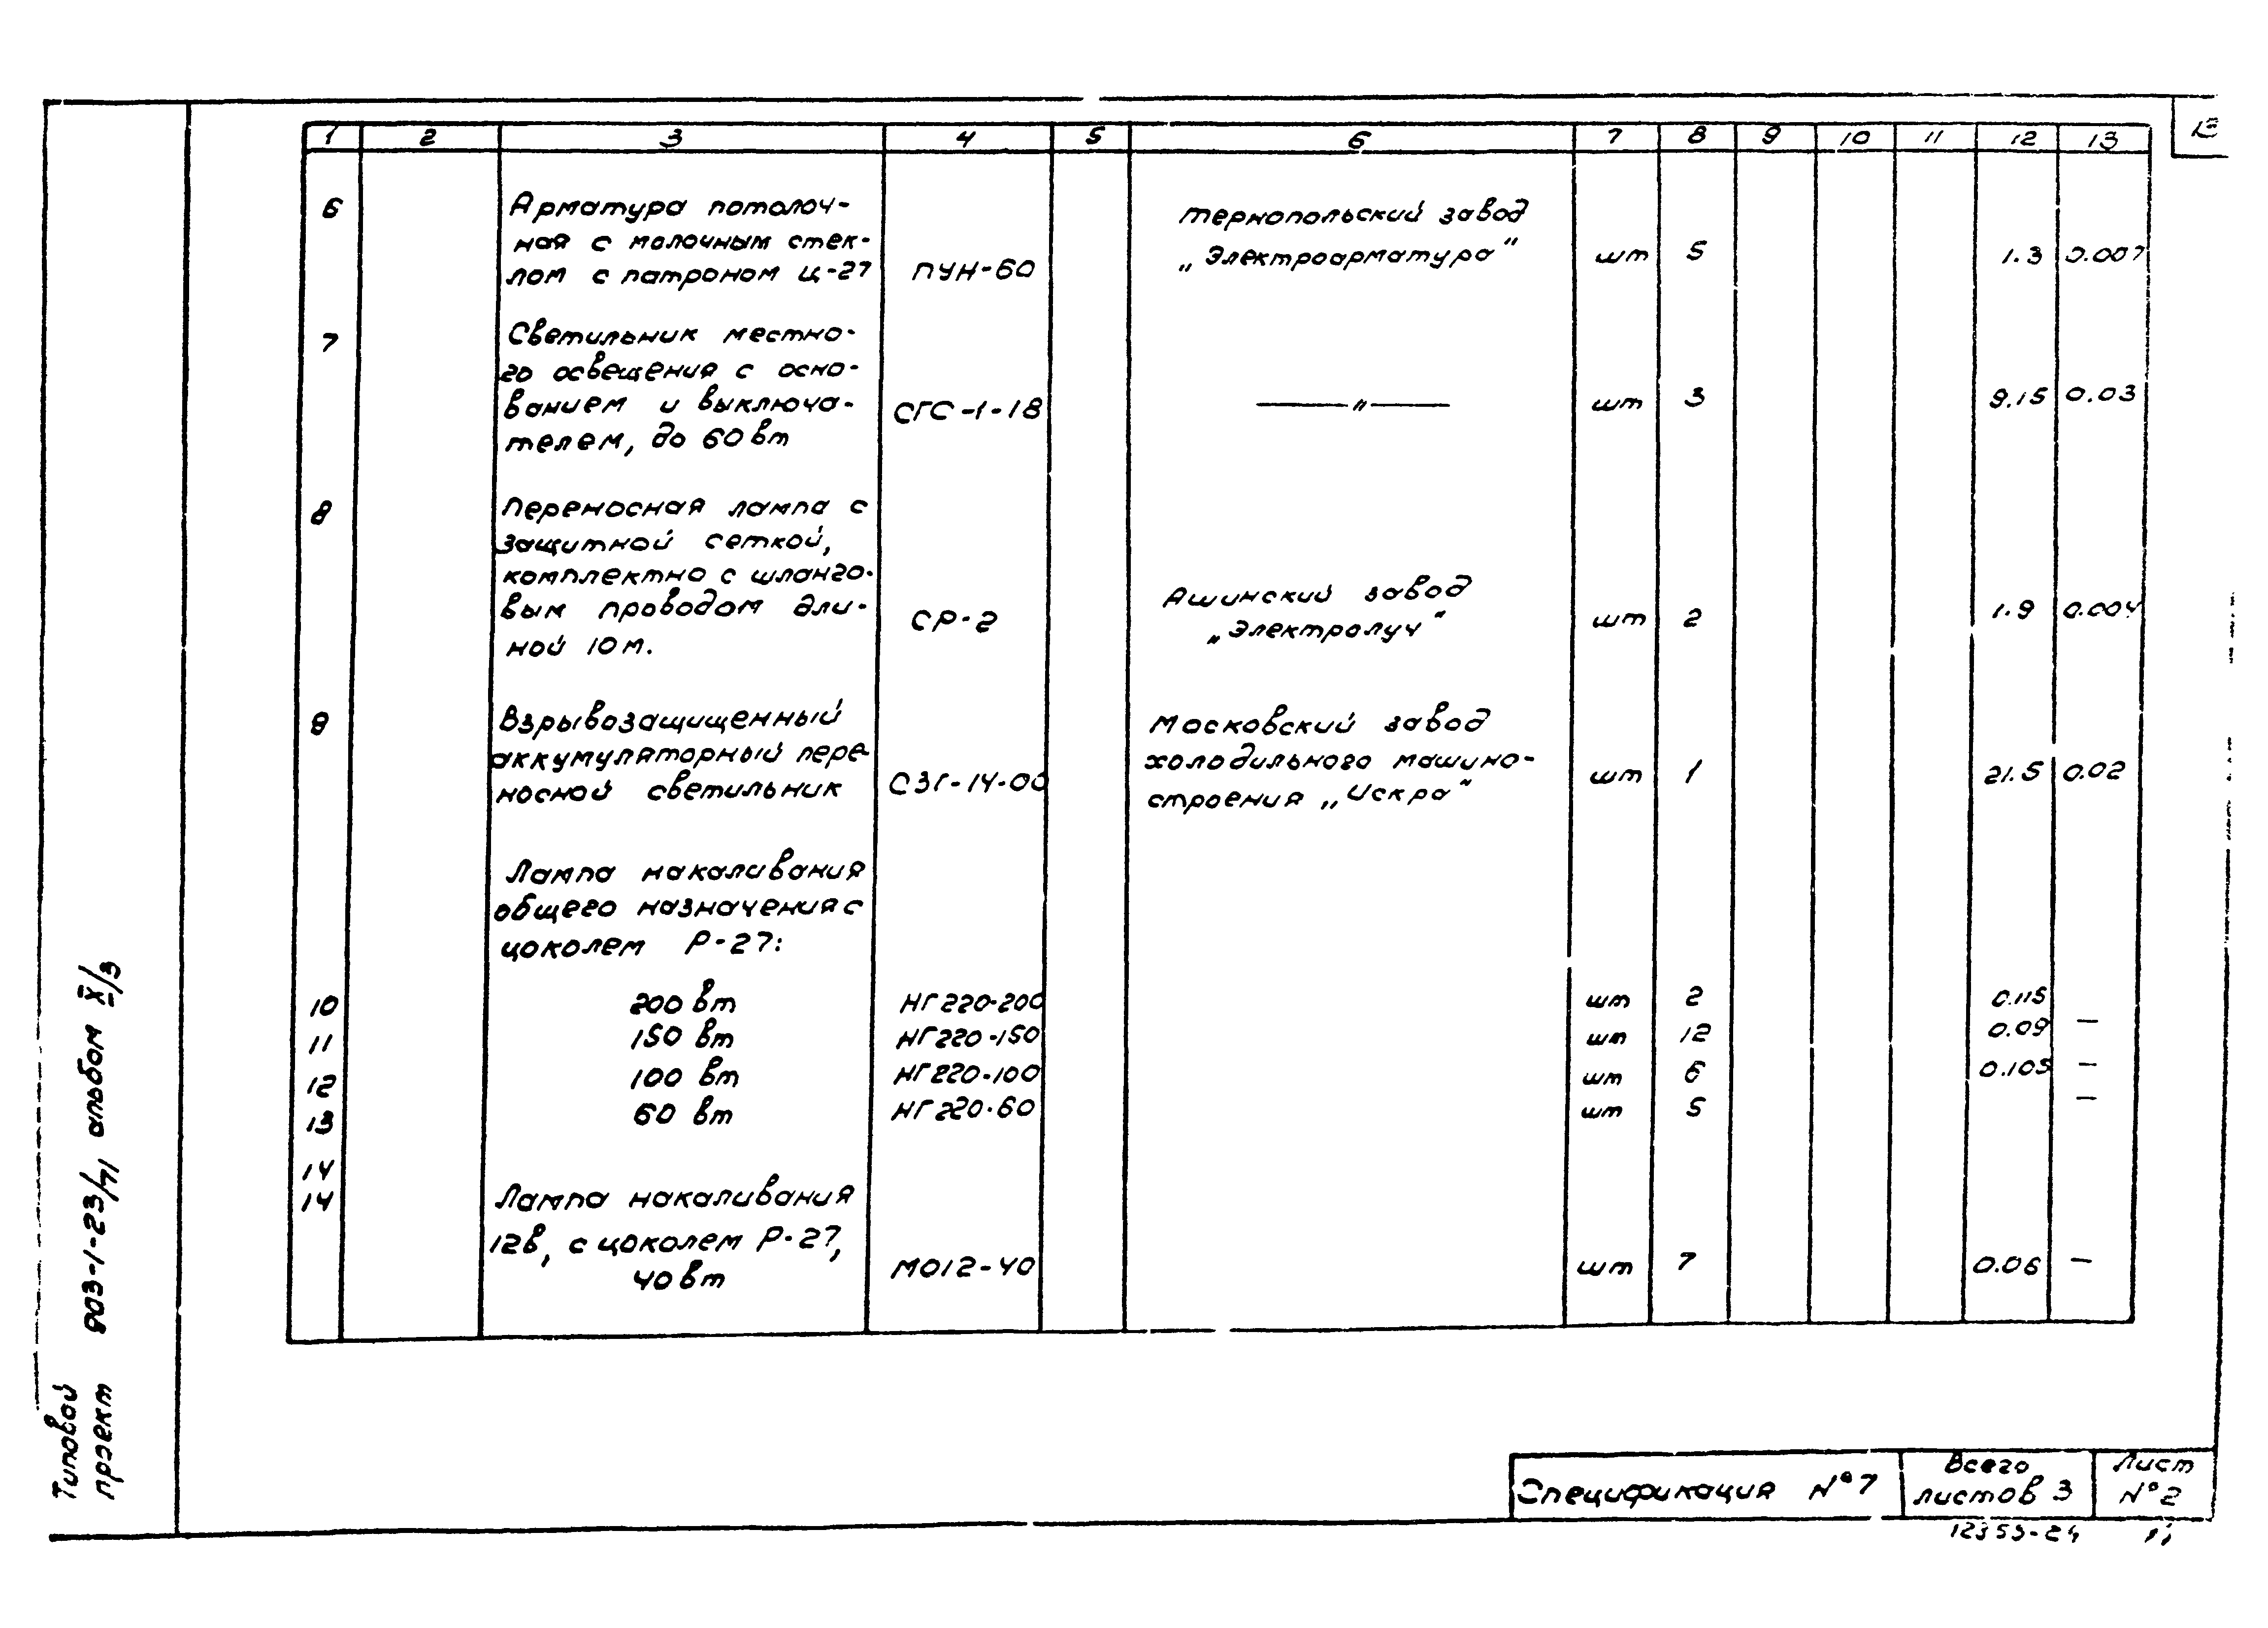 1 2 3 4 5 6 7 8 9 10 11 12 13
6 Арматура потолоч-
ная с молочным стек-
лом с патроном Ц-27 ПУН-60 Тернопольский завод „Электроарматура" шт 5 1.3 0.007
7 Светильник местно-
го освещения с осно-
ванием и выключа- СГС-1-18 —〃— шт 3 9.15 0.03
телем, до 60 вт
8 Переносная лампа с
защитной сеткой,
комплектно с шланго-
вым проводом дли- СР-2 Ашинский завод „Электролуч" шт 2 1.9 0.004
ной 10 м.
9 Взрывозащищенный Московский завод
аккумуляторный пере- холодильного машино-
носной светильник СЗГ-14-00 строения „Искра" шт 1 21.5 0.02
Лампа накаливания
общего назначения с
цоколем Р-27:
10 200 вт НГ220-200 шт 2 0.115
11 150 вт НГ220-150 шт 12 0.09 —
12 100 вт НГ220-100 шт 6 0.105 —
13 60 вт НГ220-60 шт 5 —
14
14 Лампа накаливания
12в, с цоколем Р-27,
40 вт МО12-40 шт 7 0.06 —
Типовой
проект 903-1-23/71 альбом IX/3
Спецификация №7
Всего
листов 3
Лист
№2
12353-24